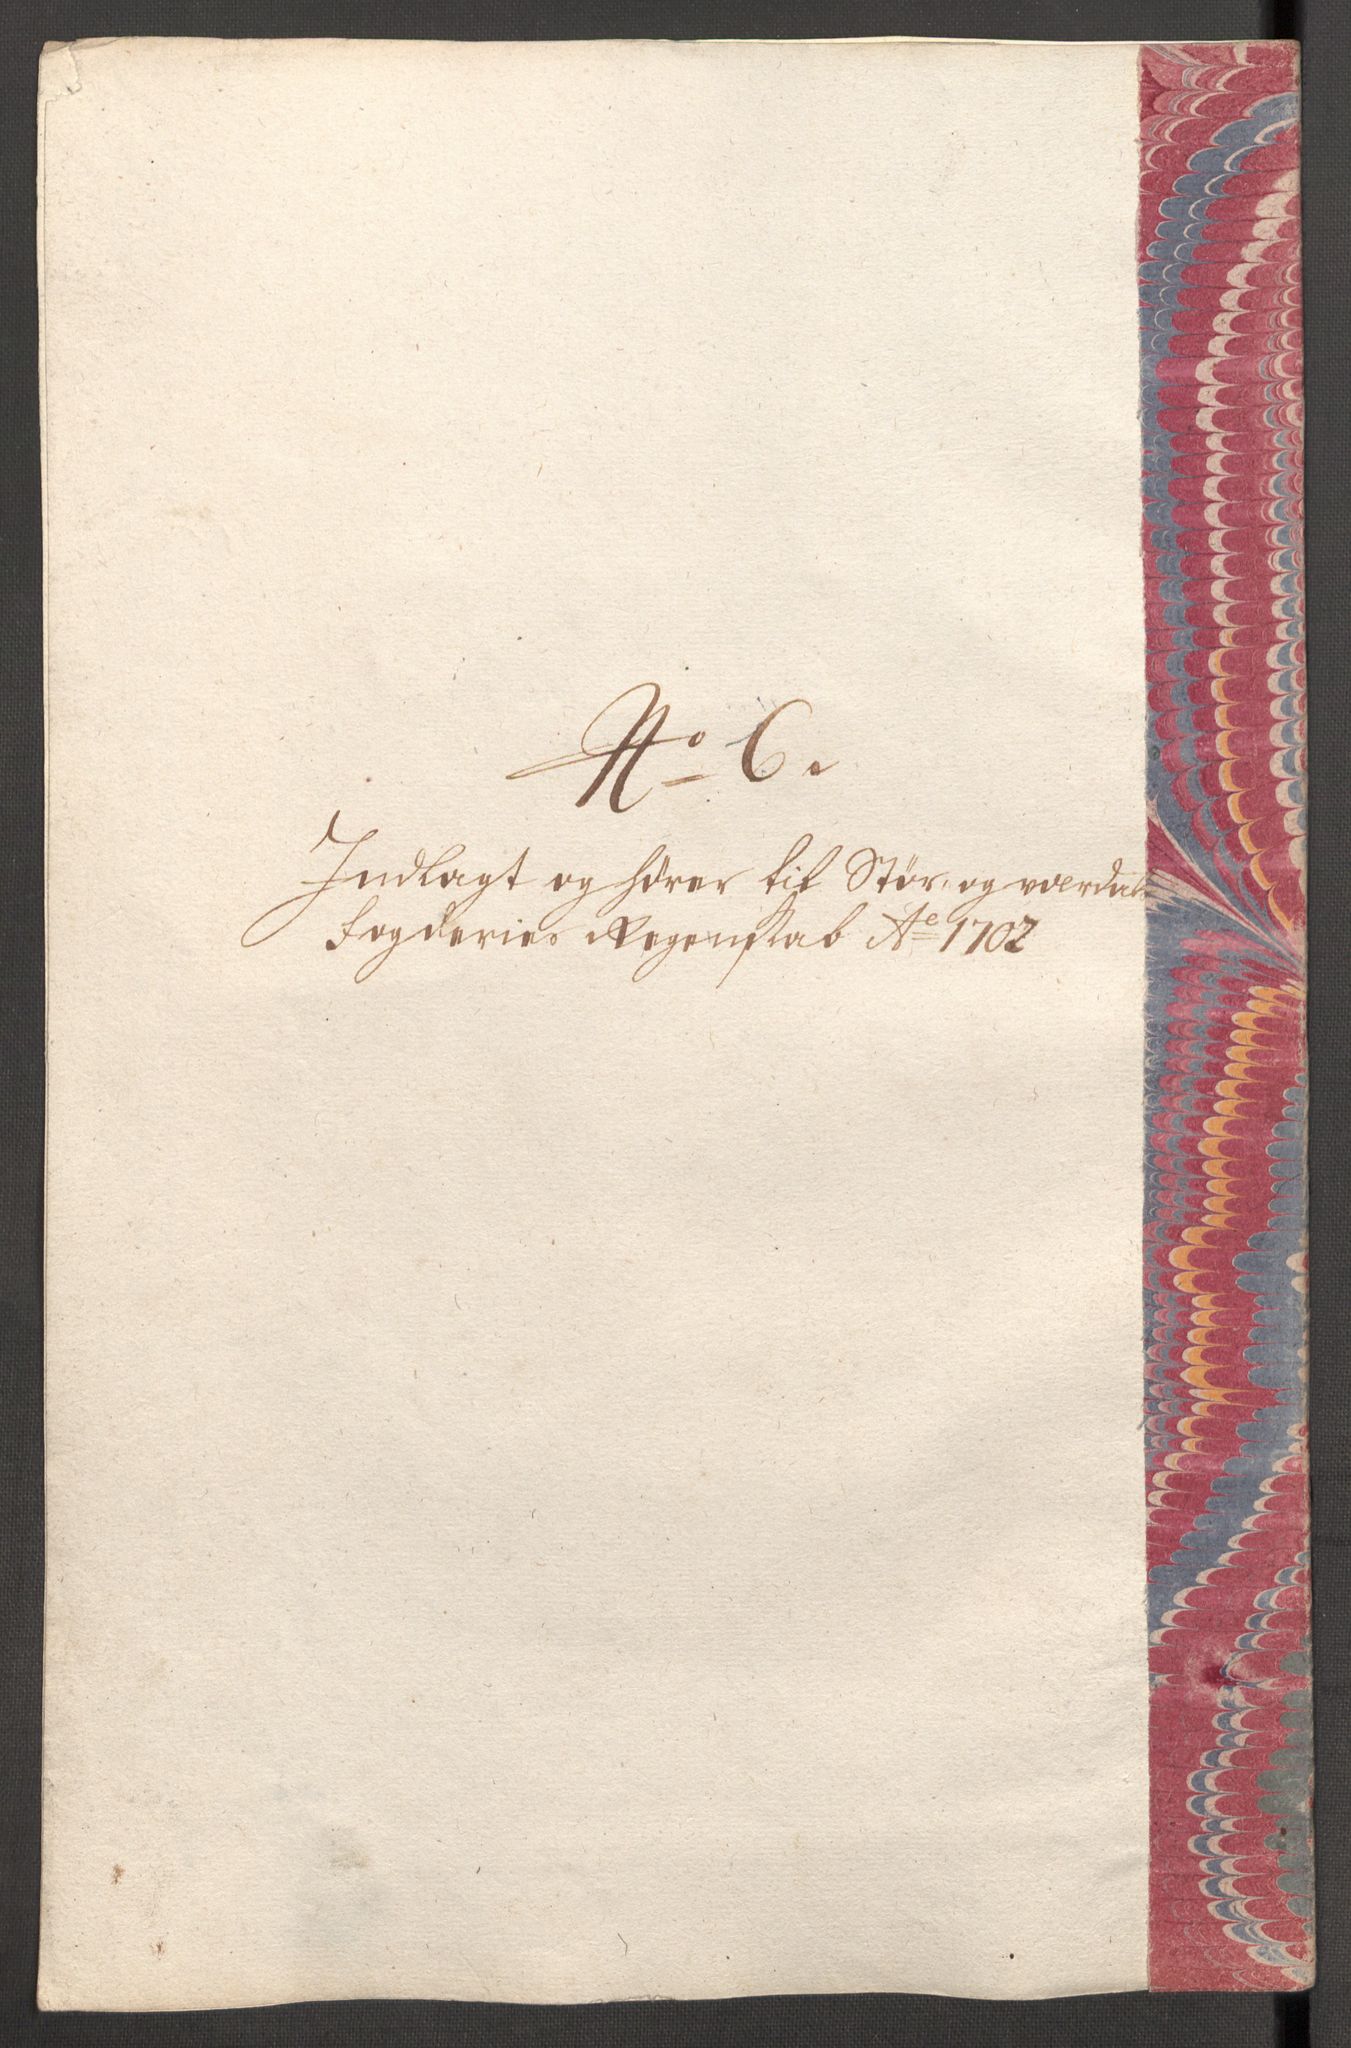 No 6.
Indlagt og hører till Stør- og værdals
fogderies Regenskab Ao 1702